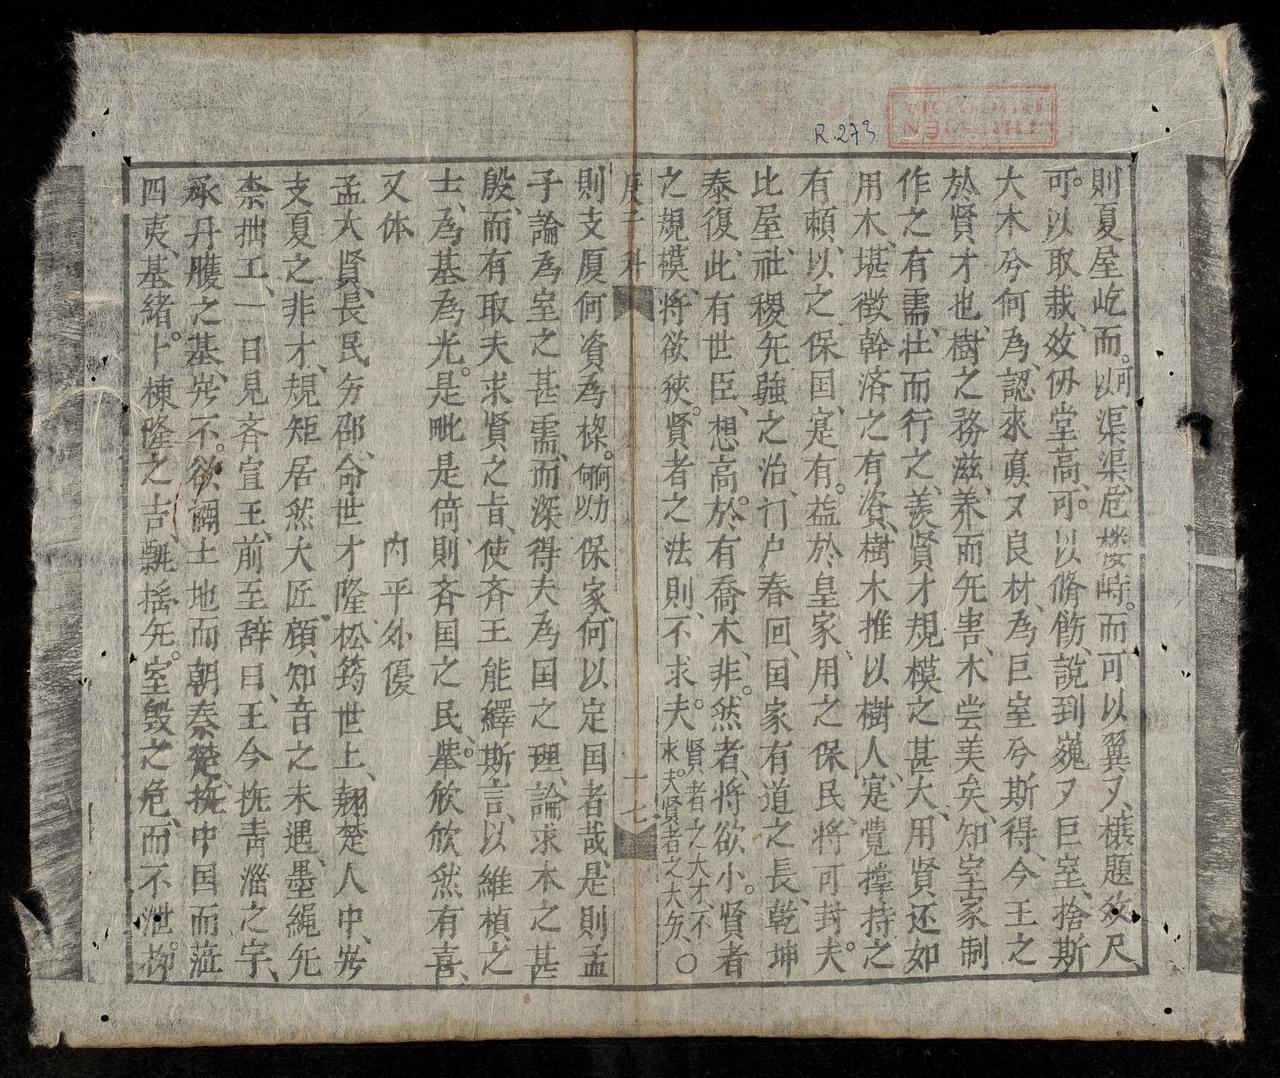 R 273
THƯ VIỆN
QUỐC GIA
則夏屋屹而。何以渠渠、危楼峙。而可以翼〻、榱題效尺、
可。以取裁、效伤堂高、可。以脩飭、說到巍〻巨室、捨斯
大木兮何為、認來真又良材、為巨室兮斯得、今王之
於賢才也、樹之務滋、养而旡害、木尝美矣、知室家制
作之有需、壮而行之、羡賢才規模之甚大、用賢还如
用木、堪徵幹済之有資、樹木推以樹人、寔覽撑持之
有頼、以之保国、寔有。益於皇家、用之保民、将可封夫。
比屋、社稷旡強之治、门户春回、国家有道之長、乾坤
泰復、此有世臣、想高。於有喬木、非。然者、将欲小。賢者
之規模、将欲狹。賢者之法則、不求夫。賢者之大才、不求夫。賢者之大矣、○
庚子科 十七
則支厦何資為樑。何以力保家、何以定国者哉、是則孟
子論為室之甚需、而深得夫為国之理、論求木之甚
殷、而有取夫求賢之旨、使斉王能繹斯言、以維楨之
士、為基為光。是毗是倚、則斉国之民。举欣欣然有喜、
又体 内平外優
孟大賢、長民夯邵、命世才隆、松筠世上、翹楚人中、岁
支夏之非才、規矩居然大匠、頋知音之未遇、墨繩旡
柰拙工、一日見斉宣王、前至辞曰、王今抚靑淄之宇、
承丹雘之基、岁不。欲闢土地而朝秦楚、抚中国而蒞
四夷、基緒。卜棟隆之吉、飄摇旡。室毁之危、而不泄抑。